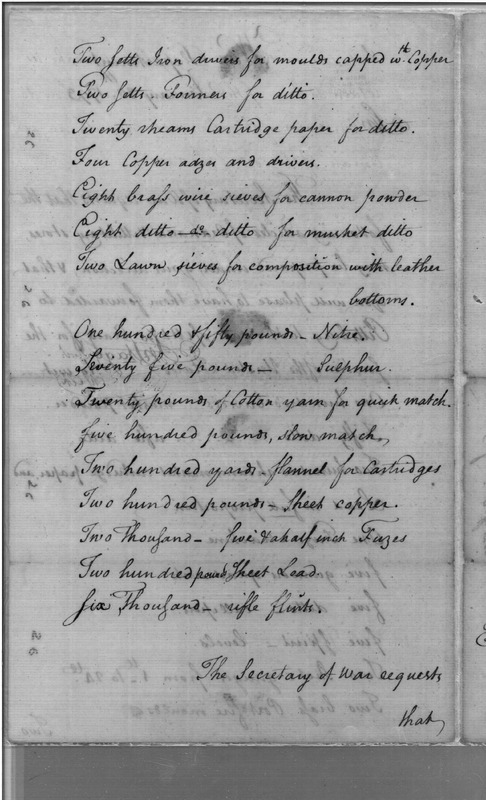 Two setts Iron drivers for moulds capped wth. Copper
Two setts Formers for ditto.
Twenty rheams Cartridge paper for ditto.
Four Copper adzes and drivers.
Eight brass wire sieves for cannon powder
Eight ditto - do ditto for musket ditto
Two Lawn sieves for composition with leather
bottoms.
One hundred & fifty pounds - Nitre.
Seventy five pounds - Sulphur.
Twenty pounds of Cotton yarn for quick match.
five hundred pounds, slow match,
Two hundred yards - flannel for Cartridges
Two hundred pounds - Sheet copper.
Two Thousand - five & a half inch Fuzes
Two hundred pounds Sheet Lead.
Six Thousand - rifle flints.
The Secretary of War requests
that